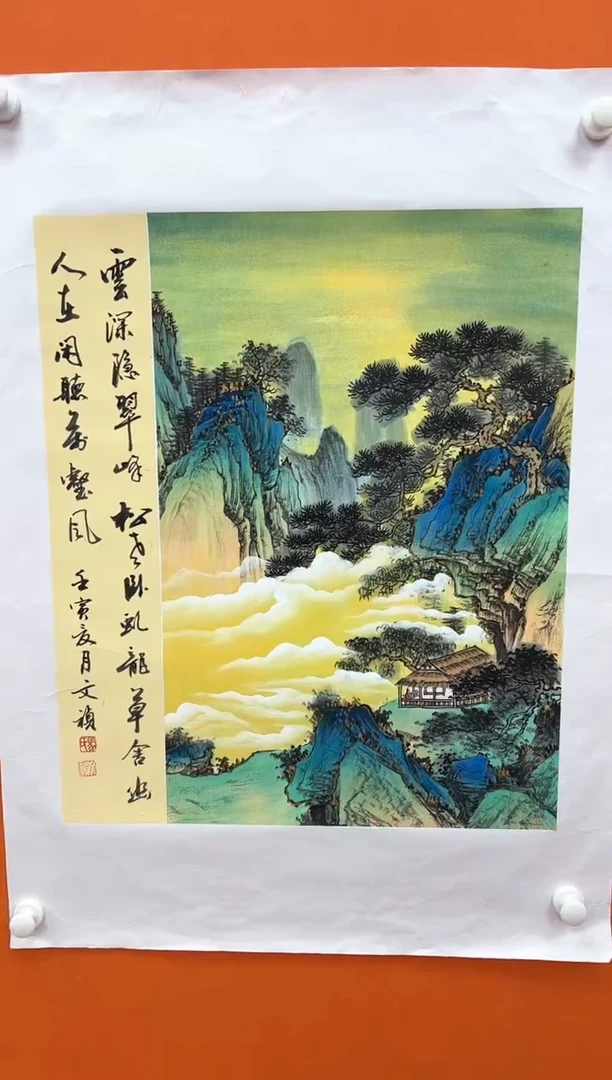 雲深隐翠峰松老卧虬龍草舍幽
人在闲聽万壑风
壬寅夏月文禎